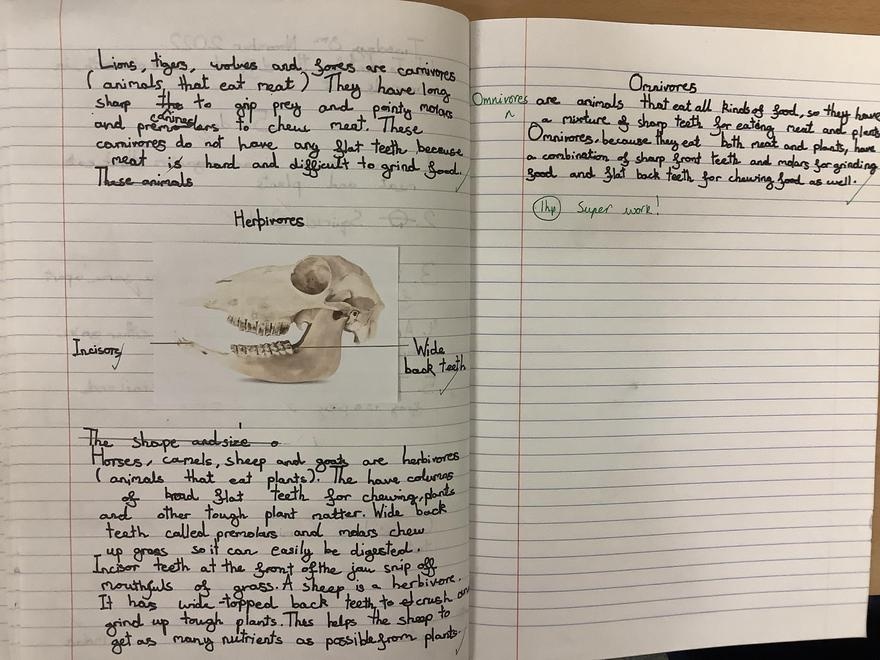 Lions, tigers, wolves and foxes are carnivores
(animals, that eat meat) They have long
sharp the to grip prey and pointy molars
canines
and premolars to chew meat. These
carnivores do not have any flat teeth because
meat is hard and difficult to grind food.
These animals
Herbivores
Incisors
Wide
back teeth
The shape and size
Horses, camels, sheep and goats are herbivores
(animals that eat plants). The have columns
of broad flat teeth for chewing, plants
and other tough plant matter. Wide back
teeth called premolars and molars chew
up grass so it can easily be digested.
Incisor teeth at the front of the jaw snip off
mouthfuls of grass. A sheep is a herbivore.
It has wide-topped back teeth to crush an
grind up tough plants. This helps the sheep to
get as many nutrients as possible from plants.
Omnivores
Omnivores are animals that eat all kinds of food, so they have
a mixture of sharp teeth for eating meat and plants
Omnivores, because they eat both meat and plants, have
a combination of sharp front teeth and molars for grinding
food and flat back teeth for chewing food as well.
1hp Super work!